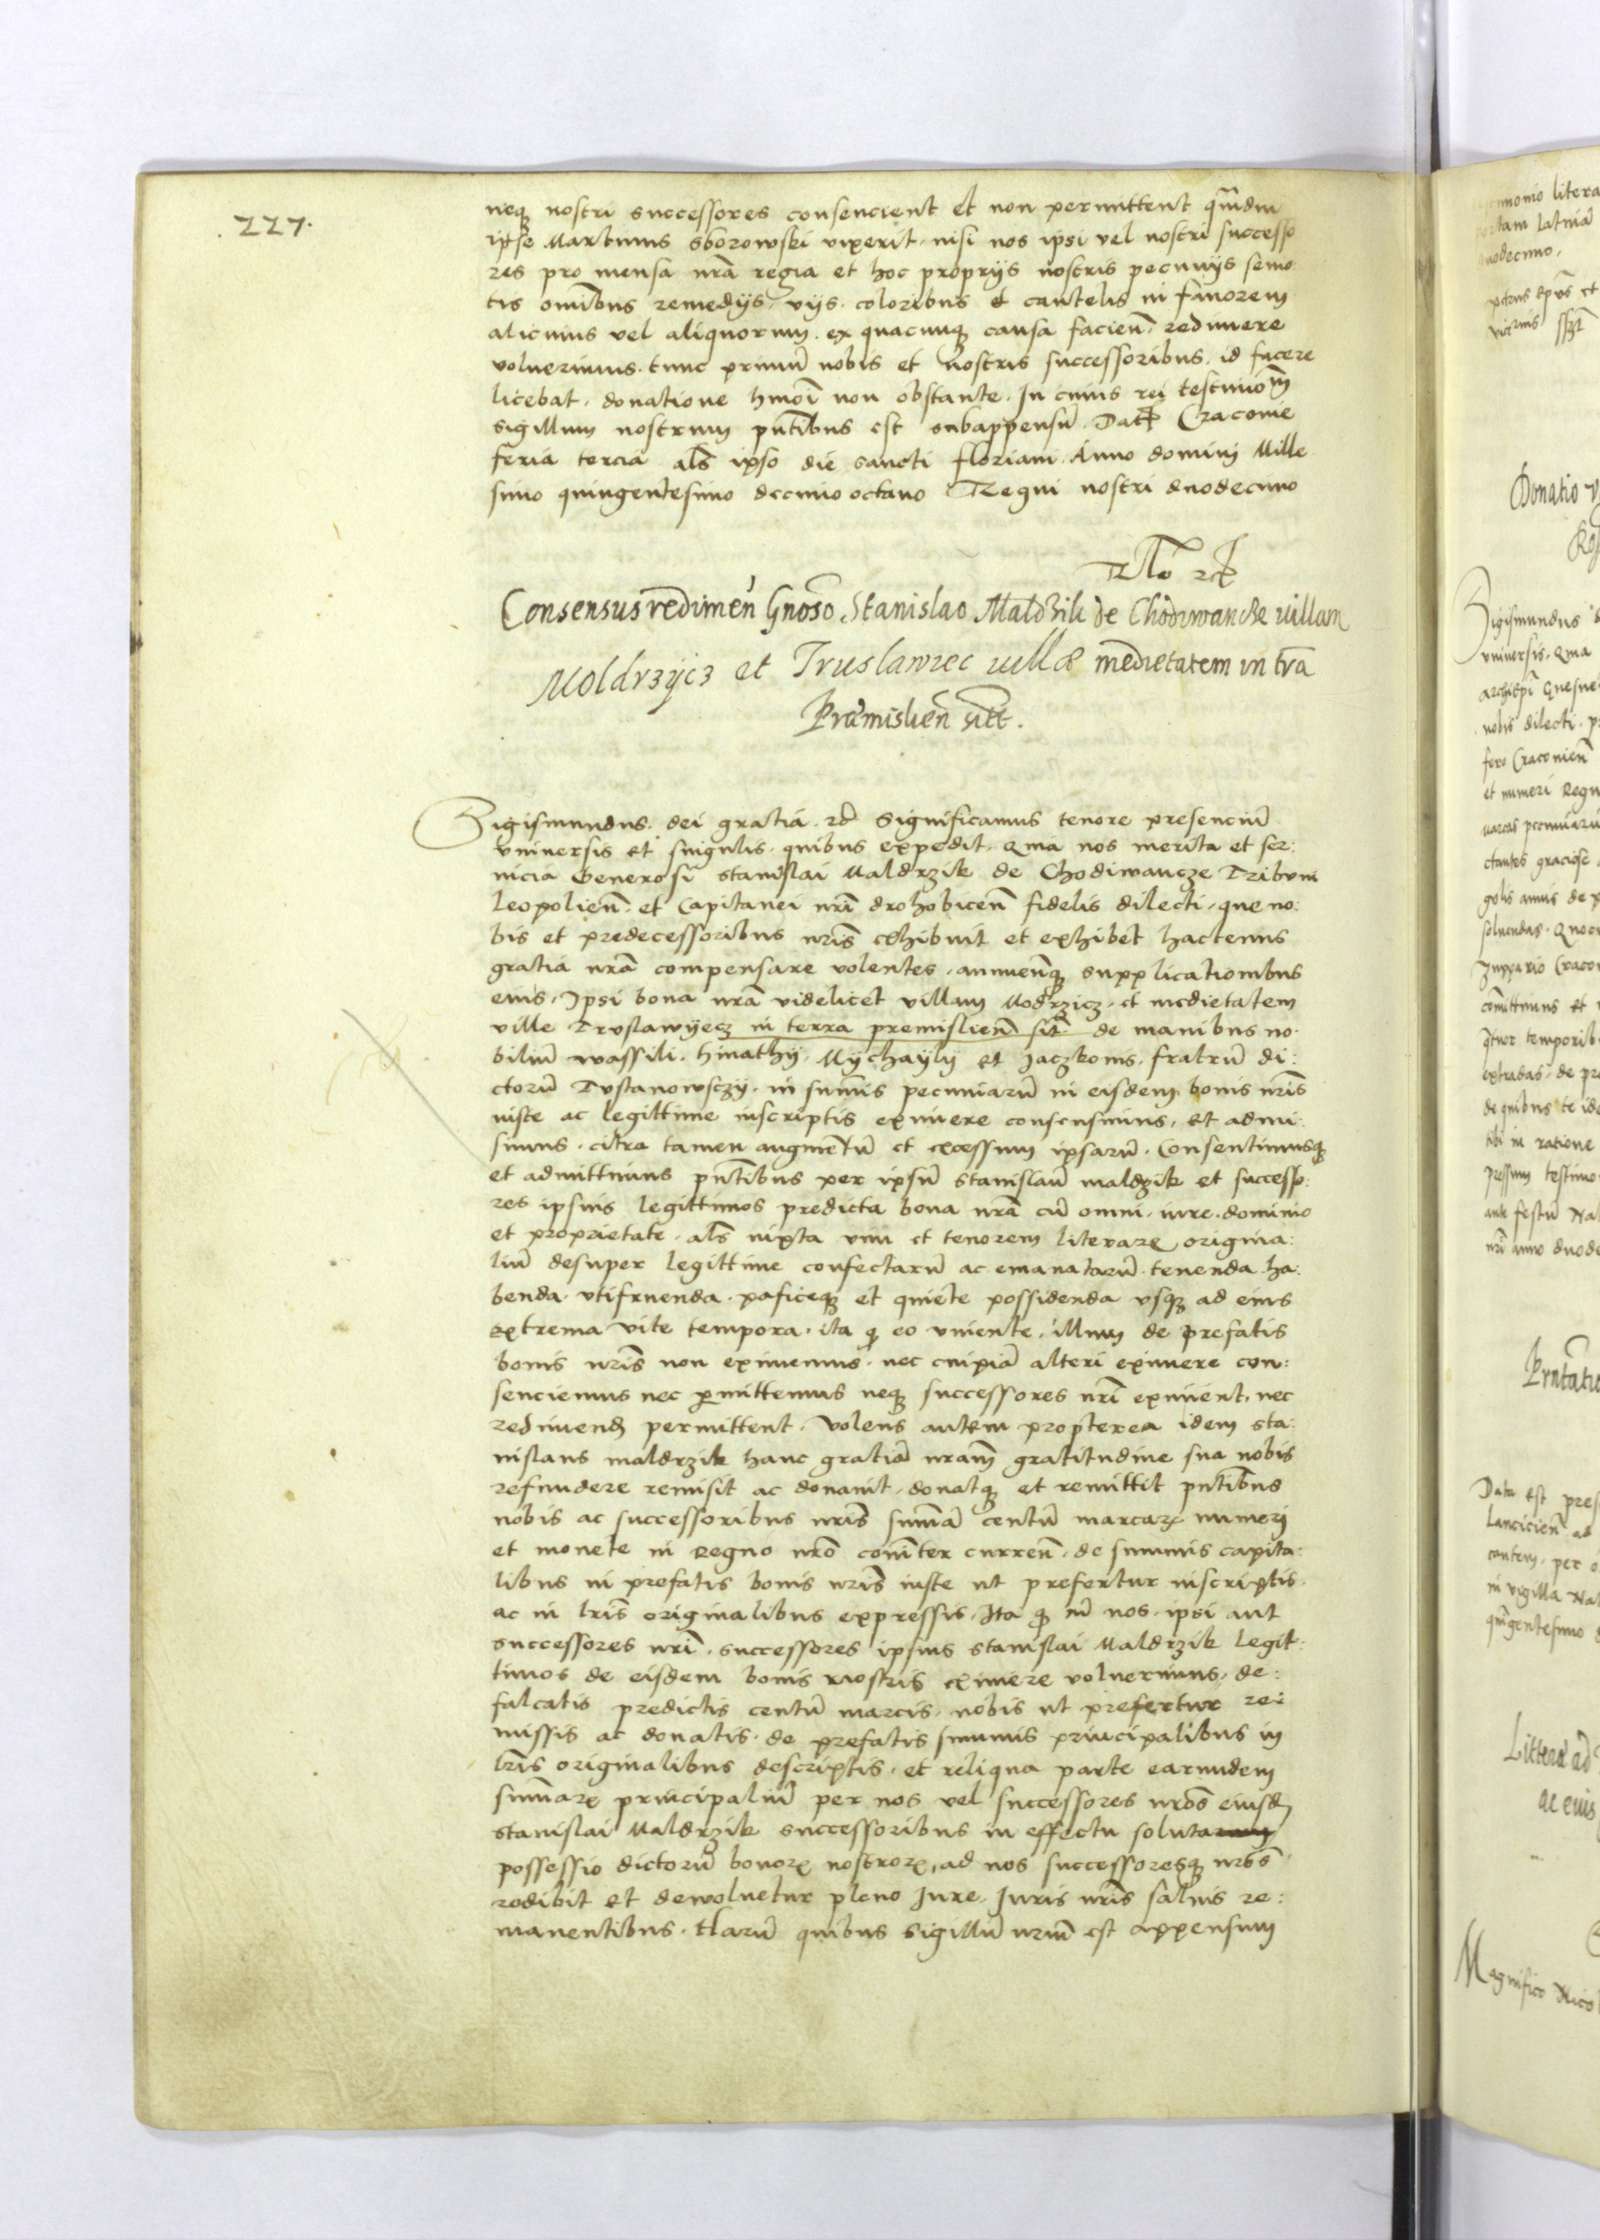 227.
neq nostri successores consencient et non permittent qmdiu
ipse Martinus Sborowski vixerit. nisi nos ipsi vel nostri successo
res pro mensa nra regia et hoc proprijs nostris pecunijs semo
tis omibus remedijs vijs. coloribus et cautelis in fauorem
alicuius vel aliquorum. ex quacunq causa facien. redimere
voluerimus. tunc primu nobis et nostris successoribus. id facere
licebat. donatione hmoi non obstante. In cuius rei testimom
sigillum nostrum pntibus est subappensu. Dat Cracouie
feria tercia als ipso die sancti floriani. Anno domini Mille
simo quingentesimo decimo octauo Regni nostri duodecimo
Consensus redimen Gnoso Stanislao Maldrzik de Chodiwancze villam
Moldrzycz et Truslawiec villæ medietatem in tra
Præmislien sitt.
Sigismundus. dei gratia. rc Significamus tenore presenciu
vniuersis et singulis. quibus expedit. Quia nos merita et ser:
uicia Generosi Stanislai Maldrzik de Chodiwancze Tribuni
Leopolien. et Capitanei nri drohobicen fidelis dilecti. que no:
bis et predecessoribus nris exhibuit et exhibet hactenus
gratia nra compensare volentes. annuenq supplicationibus
eius. Ipsi bona nra videlicet villam Modrzicz. et medietatem
ville Truslawyecz in terra premislien sit de manibus no-
biliu wassili. hnathy. Mychayly et Jaczkonis. fratru di:
ctoru Tustanowsczy. in sumis pecuniaru in eisdem bonis nris
iuste ac legittime inscriptis eximere consensimus. et admi:
simus. citra tamen augmentu et excessum ipsaru. Consentimusq
et admittimus pntibus per ipsu Stanislau maldrzik et successo:
res ipsius legittimos predicta bona nra cu omni. iure. dominio
et proprietate. als iuxta vim et tenorem literar origina:
liu desuper legittime confectaru ac emanataru. tenenda. ha:
benda. vtifruenda. paficeq et quiete possidenda vsq ad eius
extrema vite tempora. ita q eo viuente. illum de prefatis
bonis nris non eximemus. nec cuipia alteri eximere con:
senciemus nec pmittemus neq successores nri eximent. nec
redimend permittent. Volens autem propterea idem Sta:
nislaus maldrzik hanc gratia nram gratitudine sua nobis
refundere remisit ac donauit. donatq et remittit pntibus
nobis ac successoribus nris suma centu marcar numeri
et monete in Regno nro comiter curren. de summis capita:
libus in prefatis bonis nris iuste ut prefertur inscriptis.
ac in lris originalibus expressis. Ita q cu nos. ipsi aut
successores nri. successores ipsius Stanislai Maldrzik legit:
timos de eisdem bonis nostris eximere voluerimus. de:
falcatis predictis centu marcis. nobis ut prefertur re:
missis ac donatis. de prefatis summis principalibus in
lris originalibus descriptis. et reliqua parte earundem
sumar principaliu per nos vel successores nros eiusd
Stanislai Maldrzik successoribus in effectu soluta
possessio dictoru bonor nostror, ad nos successoresq nros
redibit et dewoluetur pleno Jure. Juris nris saluis re:
manentibus. Haru quibus sigillu nrum est appensum